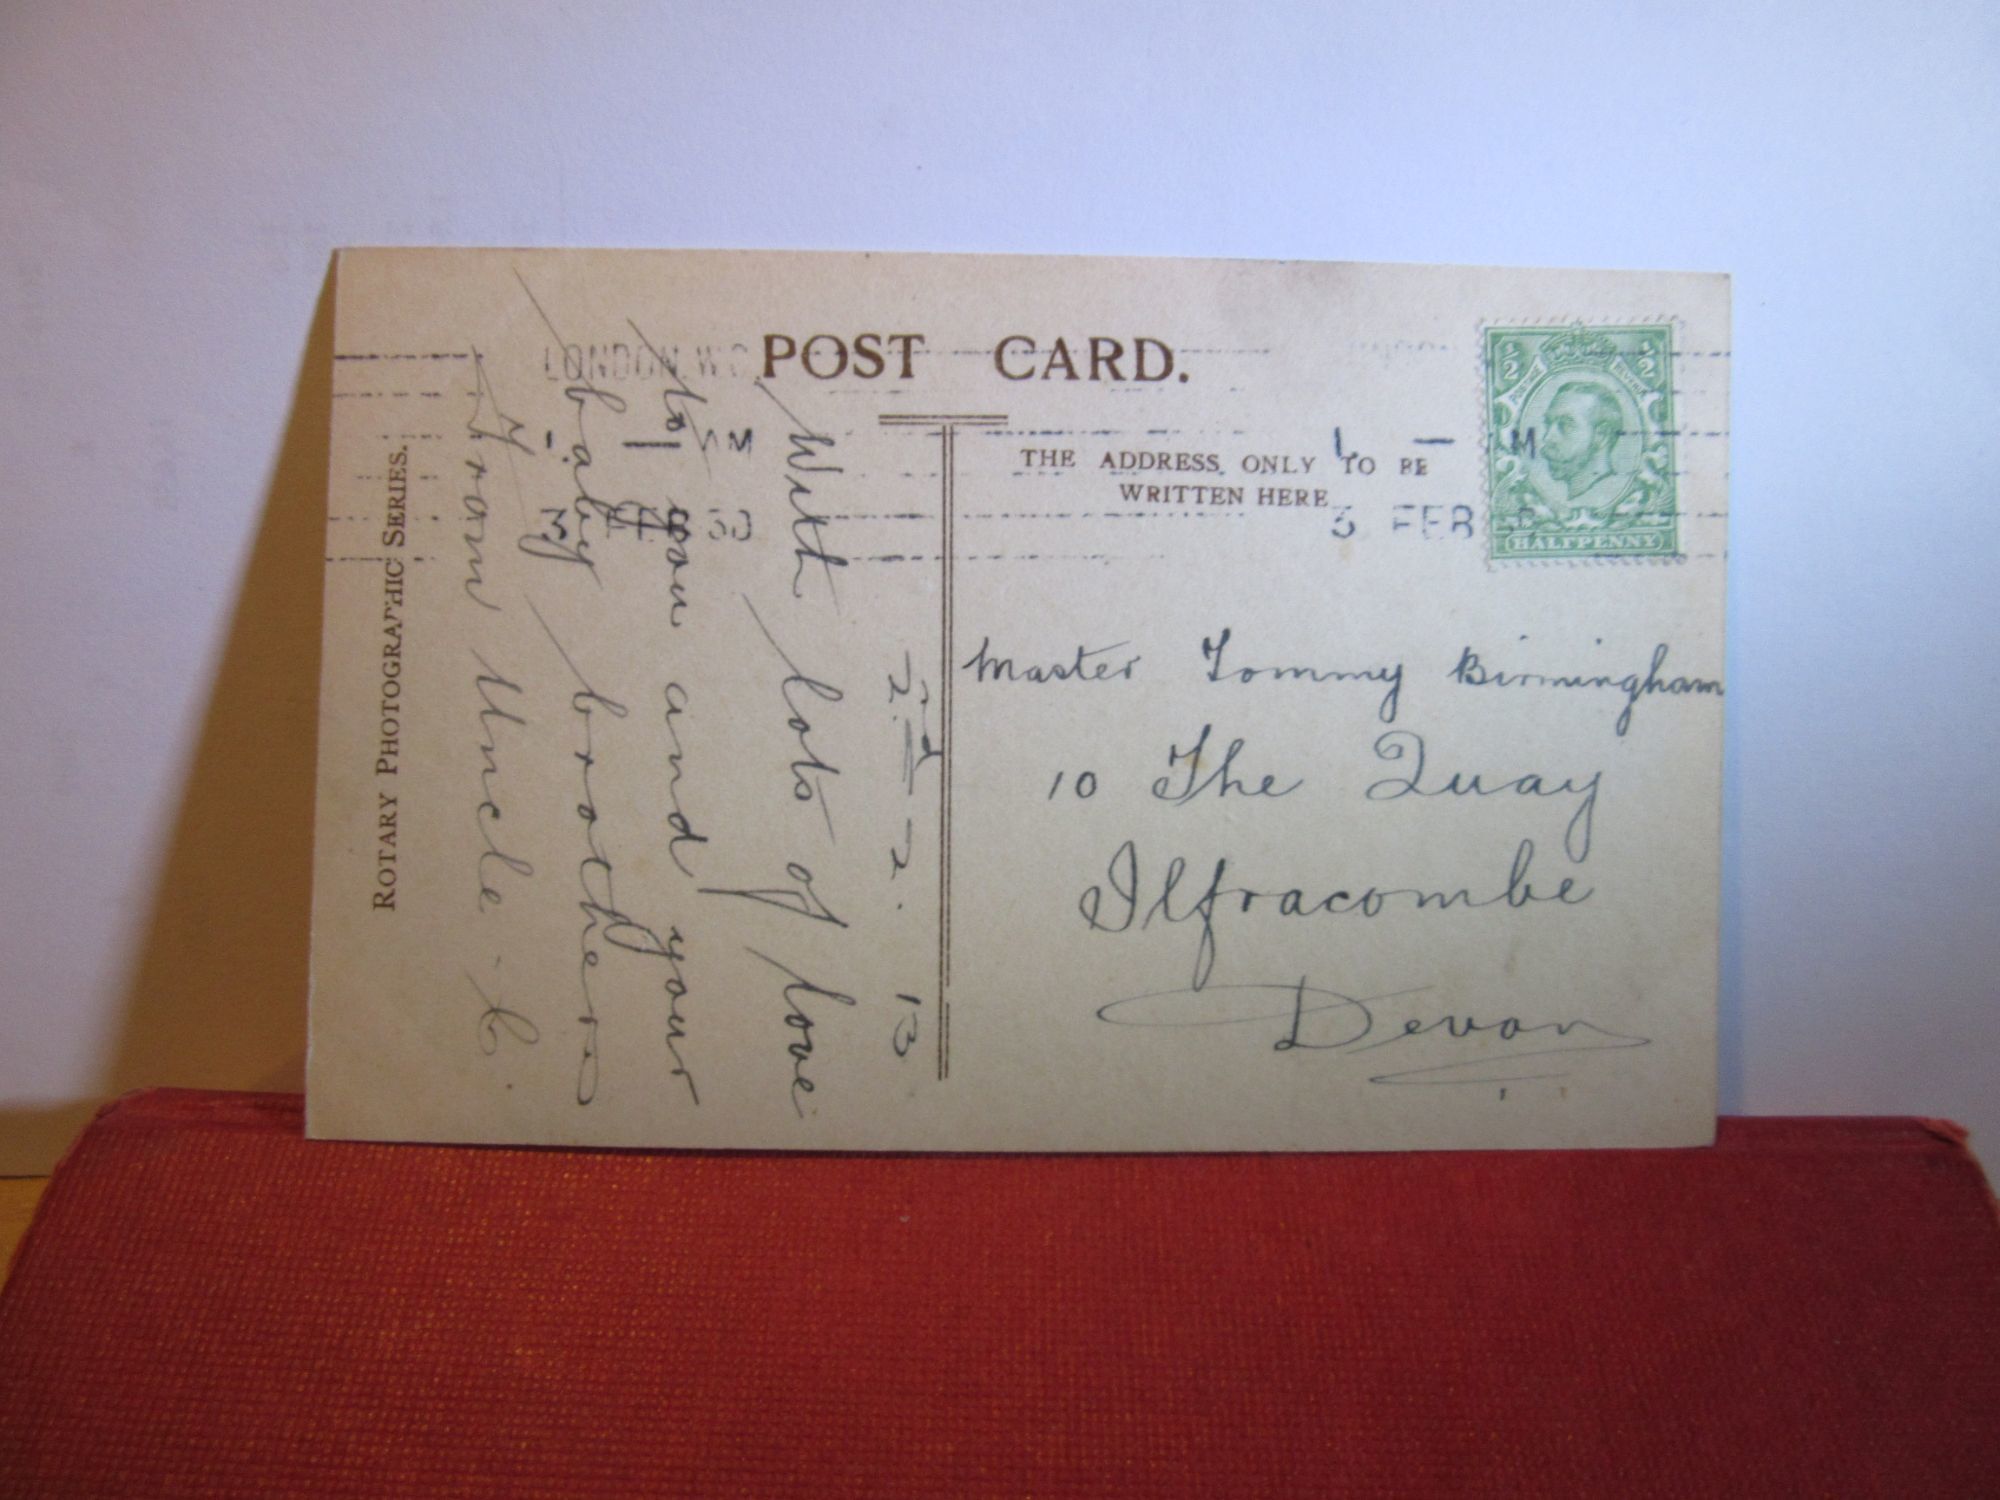 POST CARD.
LONDON. W.C
THE ADDRESS ONLY TO BE
WRITTEN HERE
3 FEB
½ ½
POSTAGE REVENUE
HALFPENNY
Master Tommy Birmingham
10 The Quay
Ilfracombe
Devon
2nd 2. 13
With lots of love
to you and your
baby brothers
From Uncle
ROTARY PHOTOGRAPHIC SERIES.